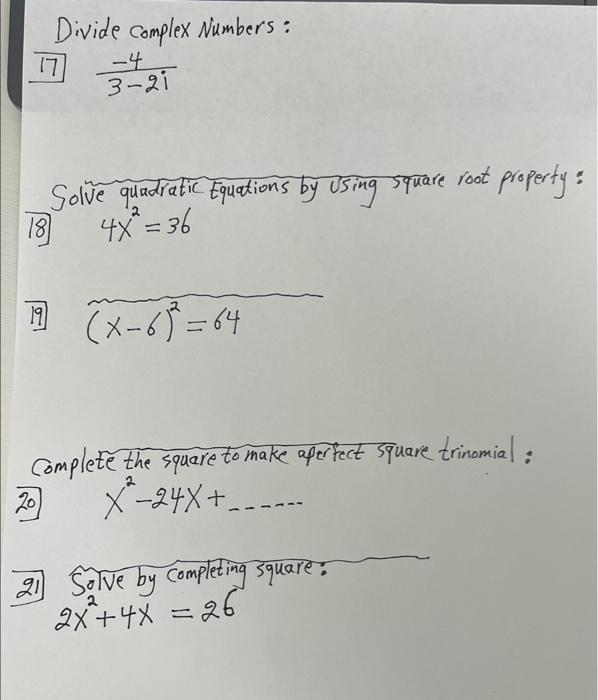 Divide complex Numbers :
17 -4
3-2i
Solve quadratic Equations by Using square root property :
18 4x² = 36
19 (x-6)² = 64
Complete the square to make a perfect square trinomial :
20 x² - 24x + ------
21 Solve by completing square :
2x² + 4x = 26